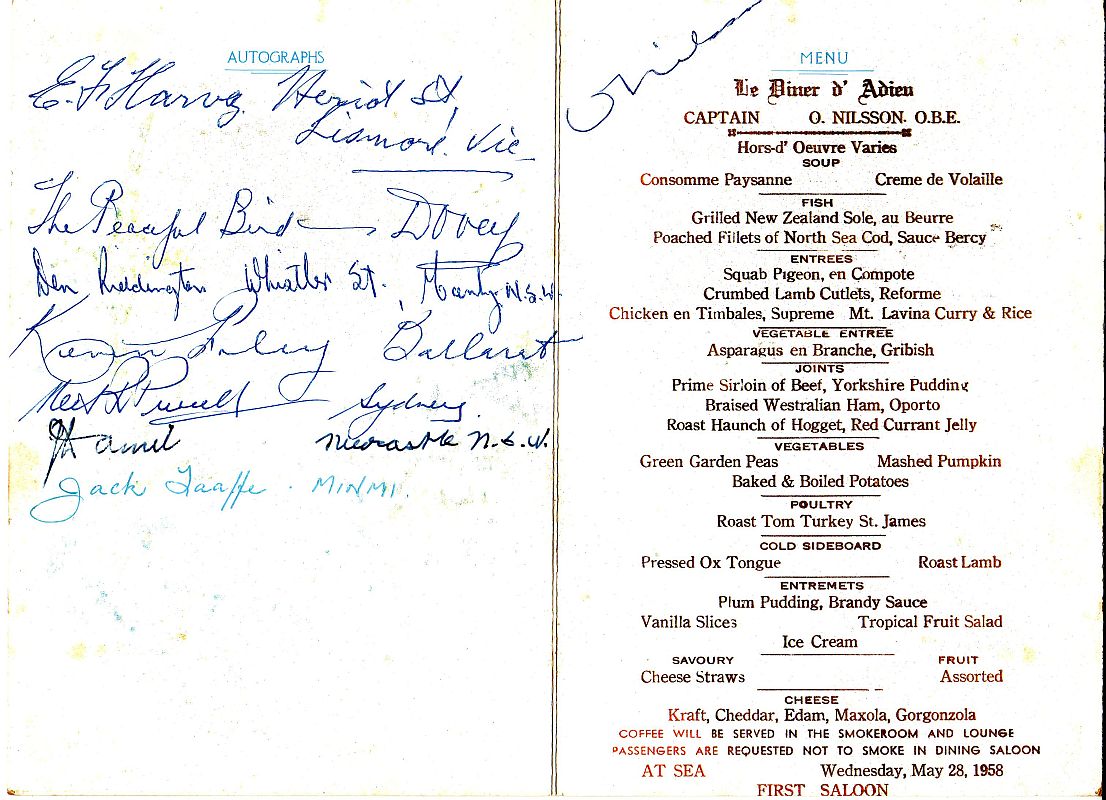 AUTOGRAPHS
E. F. Harvey. Heriot St,
Lismore. Vic
The Peaceful Bird Dovey
Den Riddington Whistler St. Manly N.S.W.
Kevin Foley Ballarat
Powell Sydney.
Newcastle N.S.W.
Jack Taaffe. MINMI.
MENU
Le Diner d' Adieu
CAPTAIN O. NILSSON. O.B.E.
Hors-d' Oeuvre Varies
SOUP
Consomme Paysanne Creme de Volaille
FISH
Grilled New Zealand Sole, au Beurre
Poached Fillets of North Sea Cod, Sauce Bercy
ENTREES
Squab Pigeon, en Compote
Crumbed Lamb Cutlets, Reforme
Chicken en Timbales, Supreme Mt. Lavina Curry & Rice
VEGETABLE ENTREE
Asparagus en Branche, Gribish
JOINTS
Prime Sirloin of Beef, Yorkshire Pudding
Braised Westralian Ham, Oporto
Roast Haunch of Hogget, Red Currant Jelly
VEGETABLES
Green Garden Peas Mashed Pumpkin
Baked & Boiled Potatoes
POULTRY
Roast Tom Turkey St. James
COLD SIDEBOARD
Pressed Ox Tongue Roast Lamb
ENTREMETS
Plum Pudding, Brandy Sauce
Vanilla Slices Tropical Fruit Salad
Ice Cream
SAVOURY FRUIT
Cheese Straws Assorted
CHEESE
Kraft, Cheddar, Edam, Maxola, Gorgonzola
COFFEE WILL BE SERVED IN THE SMOKEROOM AND LOUNGE
PASSENGERS ARE REQUESTED NOT TO SMOKE IN DINING SALOON
AT SEA Wednesday, May 28, 1958
FIRST SALOON